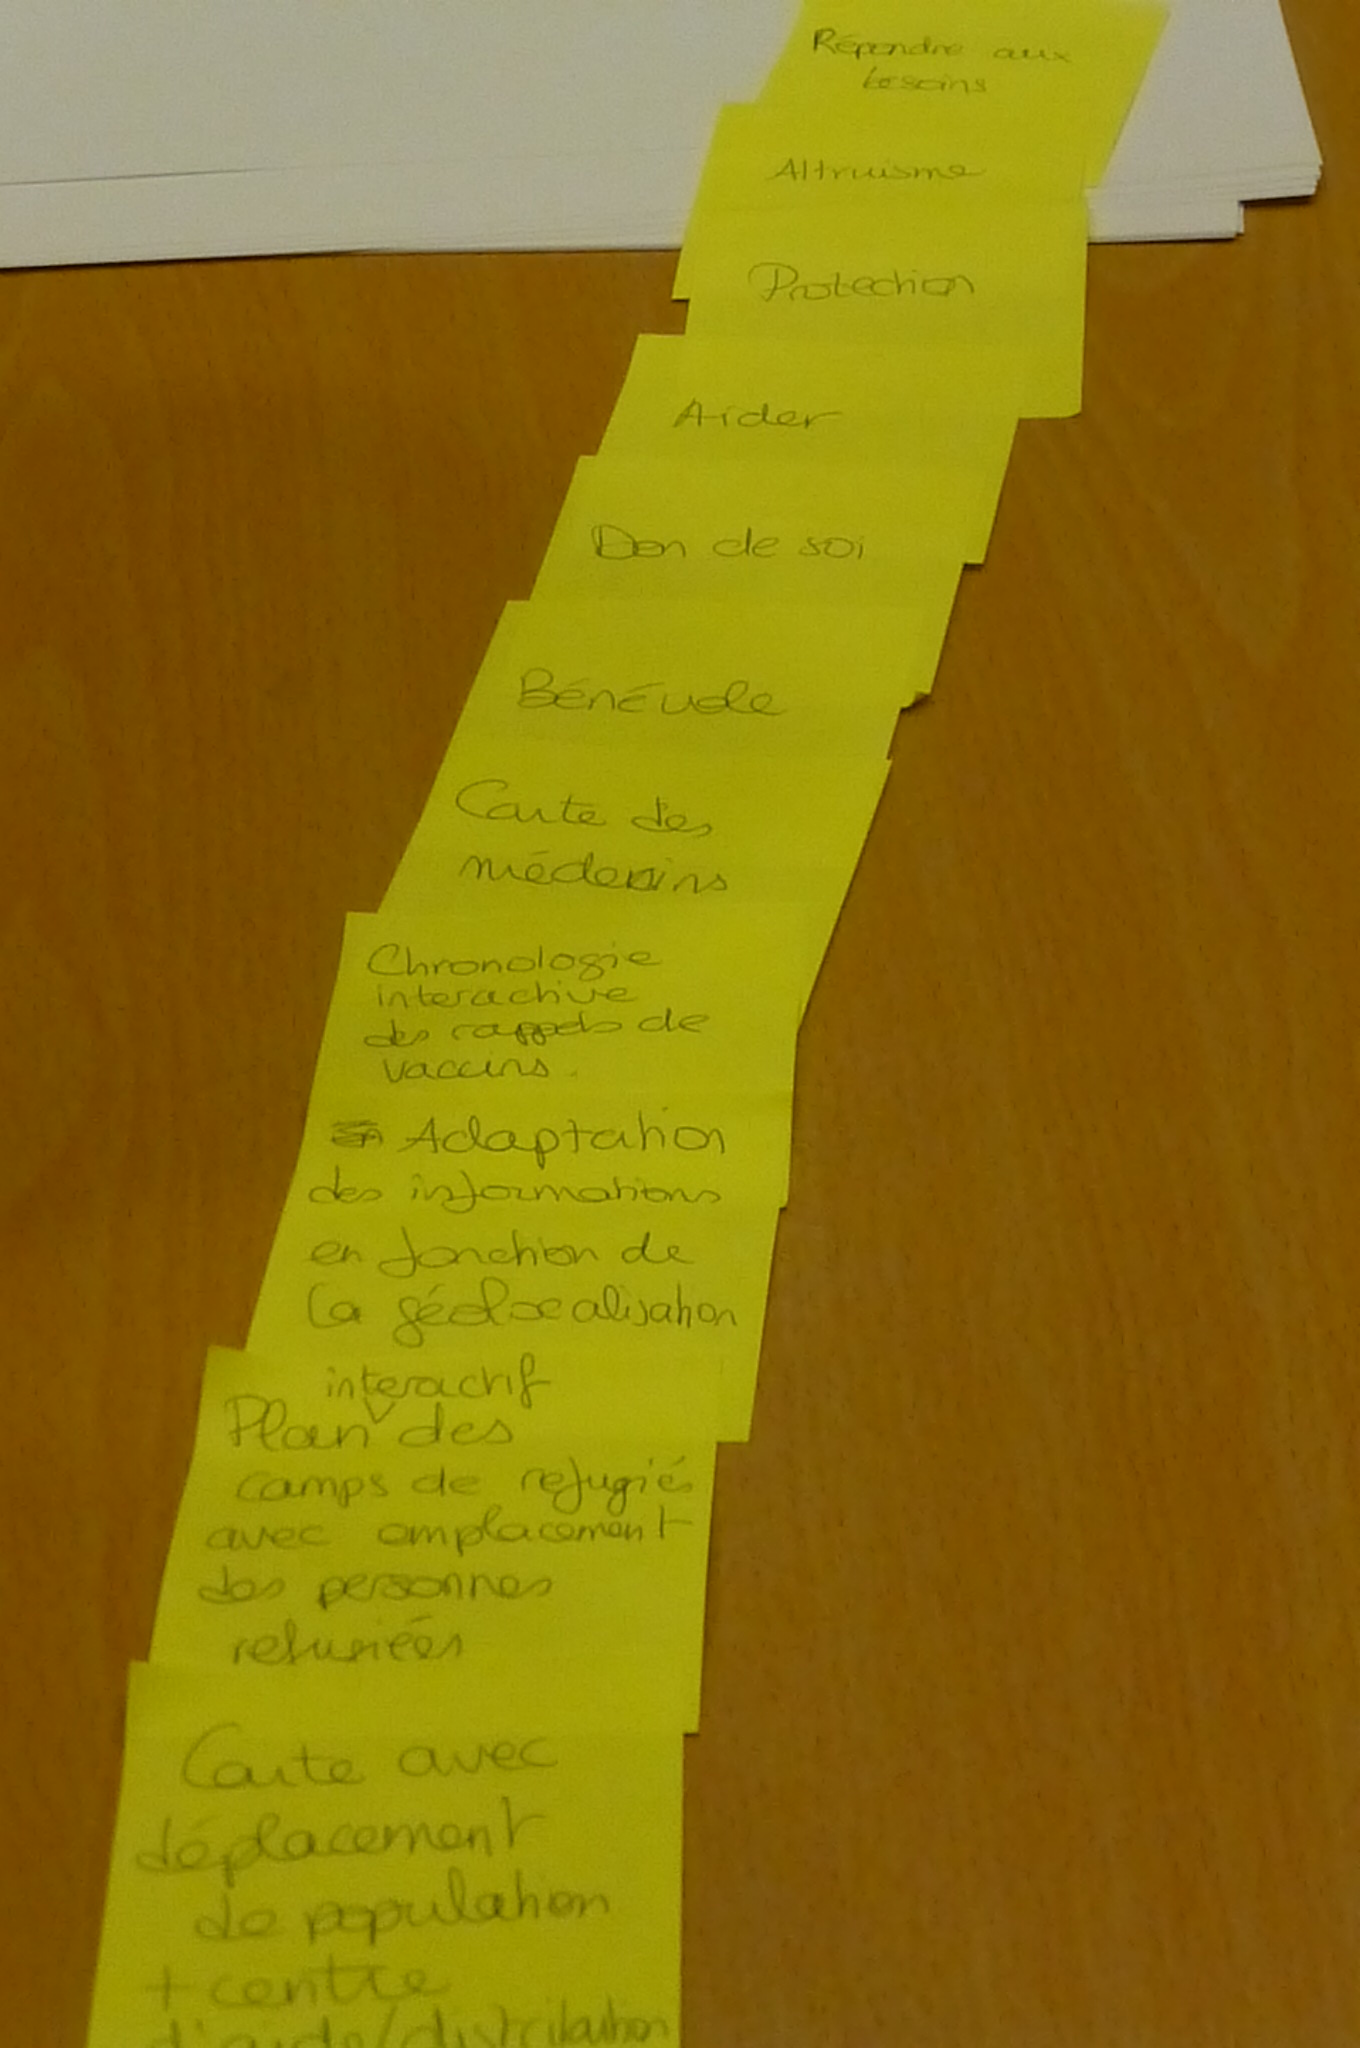 Répondre aux
besoins
Altruisme
Protection
Aider
Don de soi
Bénévole
Carte des
médecins
Chronologie
interactive
des rappels de
vaccins.
Adaptation
des informations
en fonction de
la géolocalisation
interactif
Plan des
camps de refugiés
avec emplacement
des personnes
refugiées
Carte avec
déplacement
de population
+ centre
d'aide/distribution